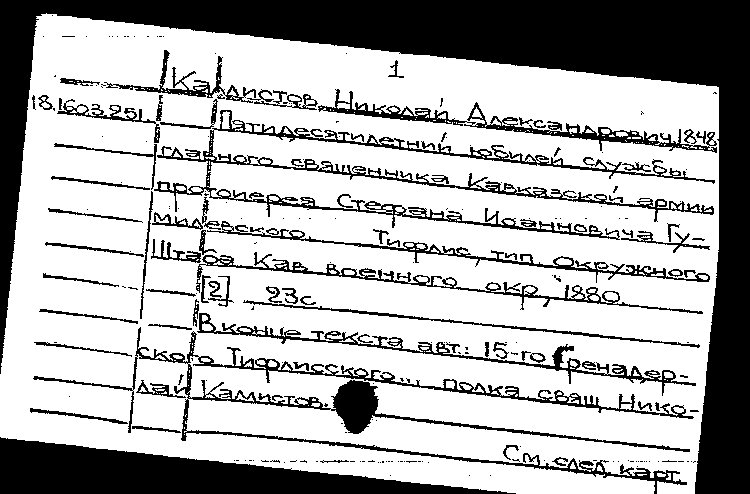 1
Каллистов, Николай Александрович, 1848-
18.1603.251. Пятидесятилетний юбилей службы
главного священника Кавказской армии
протоиерея Стефана Иоанновича Гу-
милевского. Тифлис, тип. Окружного
Штаба Кав. военного окр., 1880.
[2] 23с.
В конце текста авт.: 15-го Гренадер-
ского Тифлисского... полка свящ. Нико-
лай Каллистов.
См. след. карт.